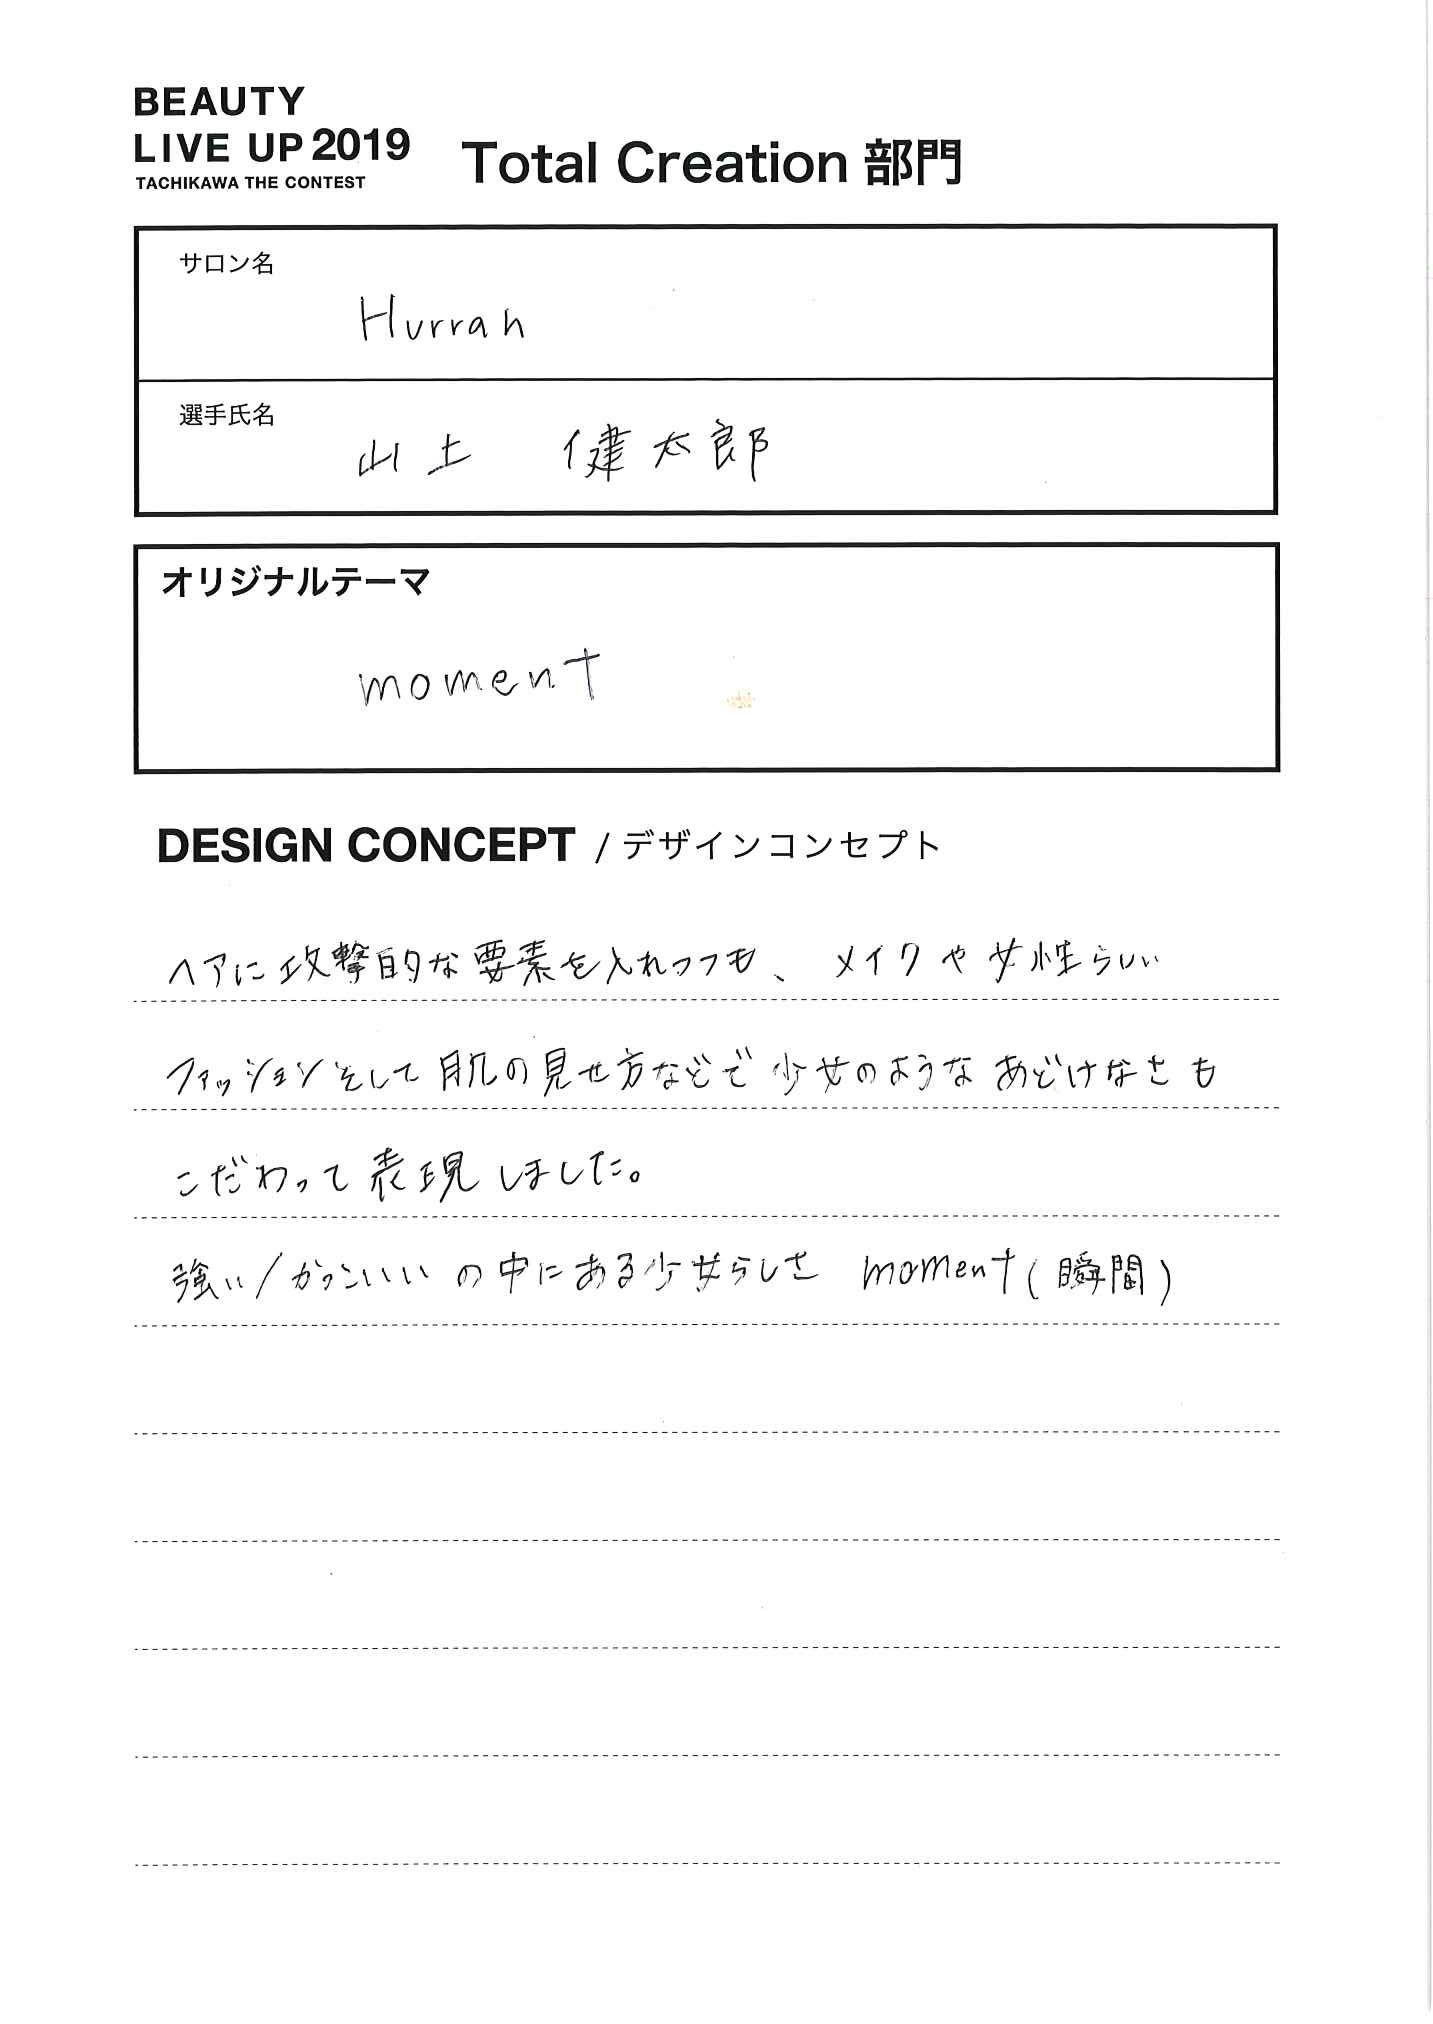 BEAUTY
LIVE UP 2019
TACHIKAWA THE CONTEST
Total Creation 部門
サロン名
Hurrah
選手氏名
山土 健太郎
オリジナルテーマ
moment
DESIGN CONCEPT / デザインコンセプト
ヘアに攻撃的な要素を入れつつも、メイクや女性らしい
ファッションそして肌の見せ方などで少女のようなあどけなさも
こだわって表現しました。
強い/かっこいいの中にある少女らしさ moment(瞬間)